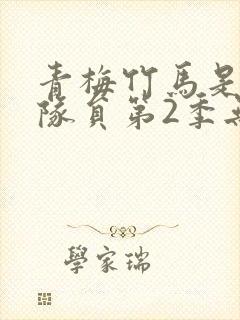 青梅竹馬是
隊員第2季
學家瑞